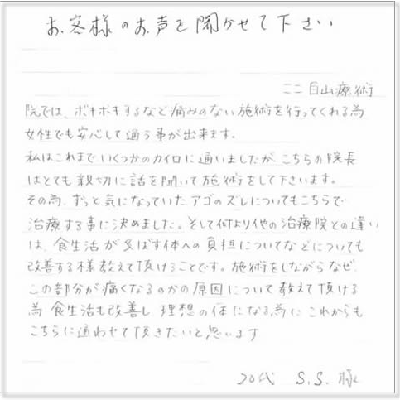 お客様のお声を聞かせて下さい
ここ白山療術
院では、ボキボキするなど痛みのない施術を行ってくれる為
女性でも安心して通う事が出来ます。
私はこれまでいくつかのカイロに通いましたが、こちらの院長
はとても親切に話を聞いて施術をして下さいます。
その為、ずっと気になっていたアゴのズレについてもこちらで
治療する事に決めました。そして何より他の治療院との違い
は、食生活が及ぼす体への負担についてなどについても
改善する様教えて頂けることです。施術をしながらなぜ、
この部分が痛くなるのかの原因について教えて頂ける
為、食生活も改善し、理想の体になる為にこれからも
こちらに通わせて頂きたいと思います
20代 S.S. 様